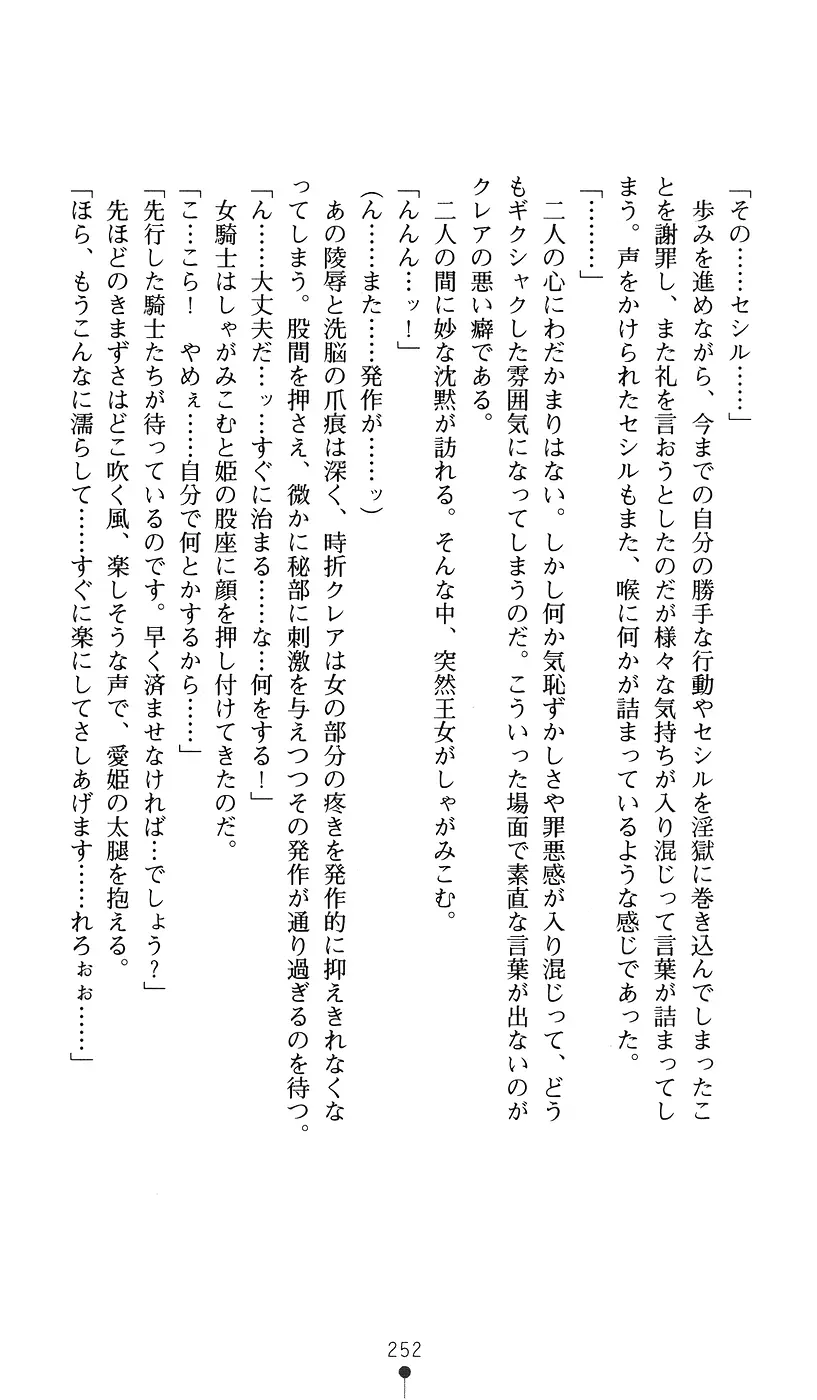 「その……セシル……」
　歩みを進めながら、今までの自分の勝手な行動やセシルを淫獄に巻き込んでしまったこ
とを謝罪し、また礼を言おうとしたのだが様々な気持ちが入り混じって言葉が詰まってし
まう。声をかけられたセシルもまた、喉に何かが詰まっているような感じであった。
「………」
　二人の心にわだかまりはない。しかし何か気恥ずかしさや罪悪感が入り混じって、どう
もギクシャクした雰囲気になってしまうのだ。こういった場面で素直な言葉が出ないのが
クレアの悪い癖である。
　二人の間に妙な沈黙が訪れる。そんな中、突然王女がしゃがみこむ。
「んんん…ッ！」
(ん……また……発作が……ッ)
　あの陵辱と洗脳の爪痕は深く、時折クレアは女の部分の疼きを発作的に抑えきれなくな
ってしまう。股間を押さえ、微かに秘部に刺激を与えつつその発作が通り過ぎるのを待つ。
「ん……大丈夫だ…ッ…すぐに治まる……な…何をする！」
　女騎士はしゃがみこむと姫の股座に顔を押し付けてきたのだ。
「こ…こら！　やめぇ……自分で何とかするから……」
「先行した騎士たちが待っているのです。早く済ませなければ…でしょう？」
　先ほどのきまずさはどこ吹く風、楽しそうな声で、愛姫の太腿を抱える。
「ほら、もうこんなに濡らして……すぐに楽にしてさしあげます……れろぉぉ……」
252